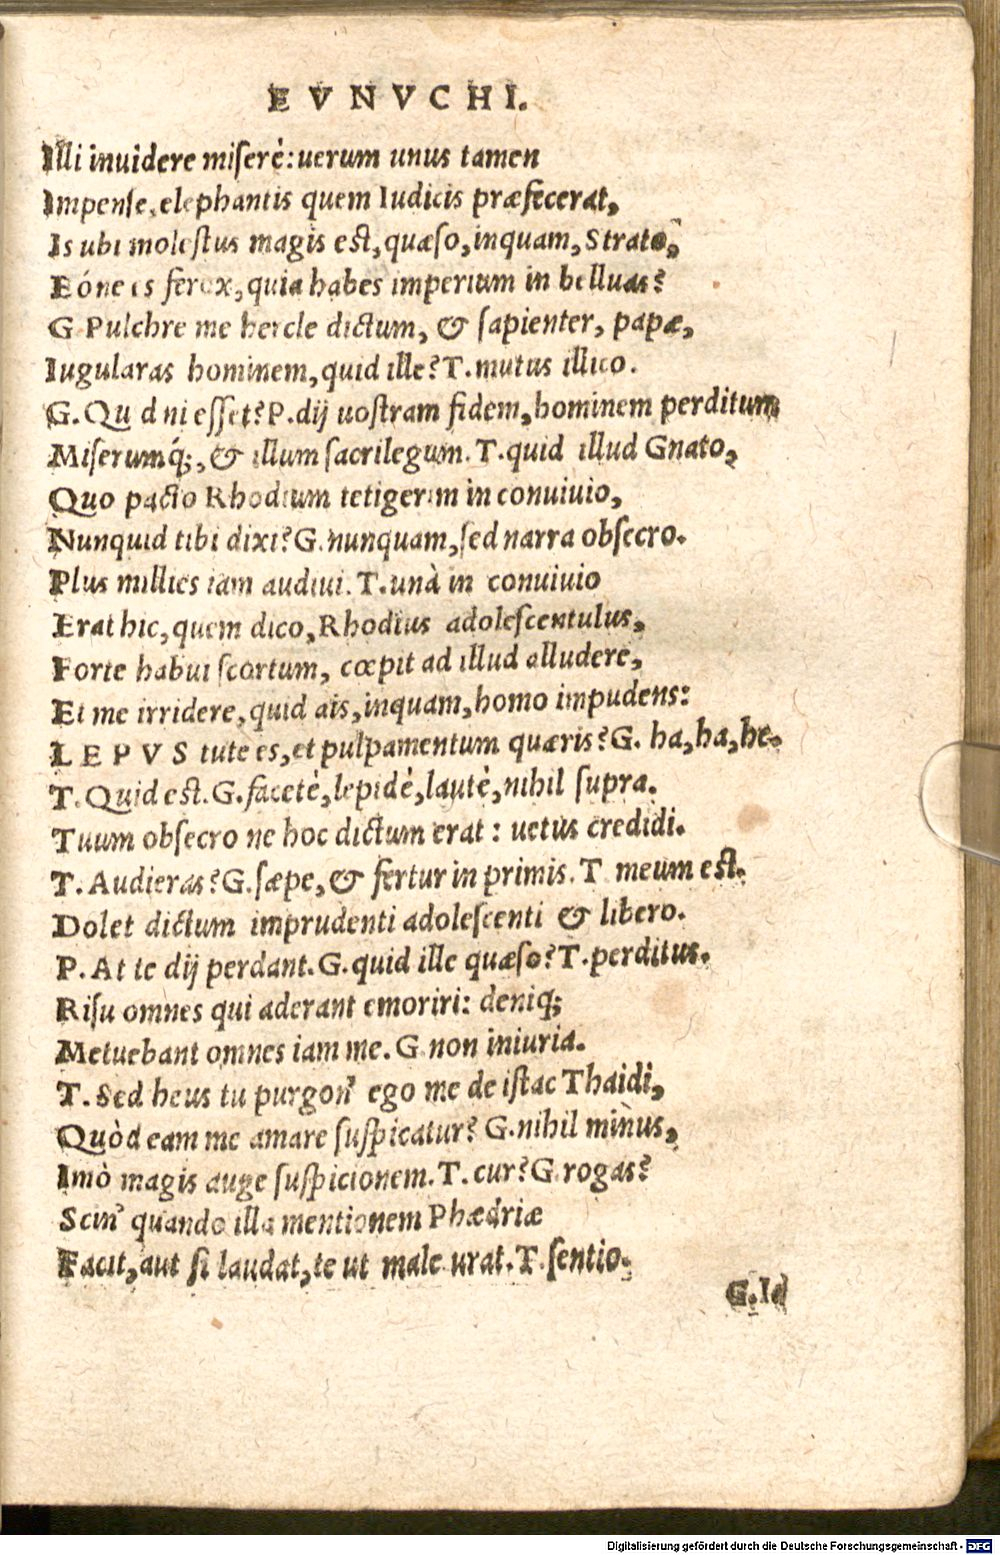 EVNVCHI.
Illi inuidere miserè: uerum unus tamen
Impense, elephantis quem Iudicis præfecerat,
Is ubi molestus magis est, quæso, inquam, Strato,
Eóne es ferox, quia habes imperium in belluas?
G Pulchre me hercle dictum, & sapienter, papæ,
Iugularas hominem, quid ille? T. mutus illico.
G. Qu d ni esset? P. dij uostram fidem, hominem perditum
Miserumq́;, & illum sacrilegum. T. quid illud Gnato,
Quo pacto Rhodium tetigerim in conuiuio,
Nunquid tibi dixi? G. nunquam, sed narra obsecro.
Plus millies iam audiui. T. unà in conuiuio
Erat hic, quem dico, Rhodius adolescentulus,
Forte habui scortum, cœpit ad illud alludere,
Et me irridere, quid ais, inquam, homo impudens:
LEPVS tute es, et pulpamentum quæris? G. ha, ha, he.
T. Quid est. G. facetè, lepidè, lautè, nihil supra.
Tuum obsecro ne hoc dictum erat: uetus credidi.
T. Audieras? G. sæpe, & fertur in primis. T meum est.
Dolet dictum imprudenti adolescenti & libero.
P. At te dij perdant. G. quid ille quæso? T. perditus.
Risu omnes qui aderant emoriri: deniq;
Metuebant omnes iam me. G non iniuria.
T. Sed heus tu purgon' ego me de istac Thaidi,
Quòd eam me amare suspicatur? G. nihil minus,
Imò magis auge suspicionem. T. cur? G. rogas?
Scin' quando illa mentionem Phædriæ
Facit, aut si laudat, te ut male urat. T. sentio.
G. Id
Digitalisierung gefördert durch die Deutsche Forschungsgemeinschaft - DFG